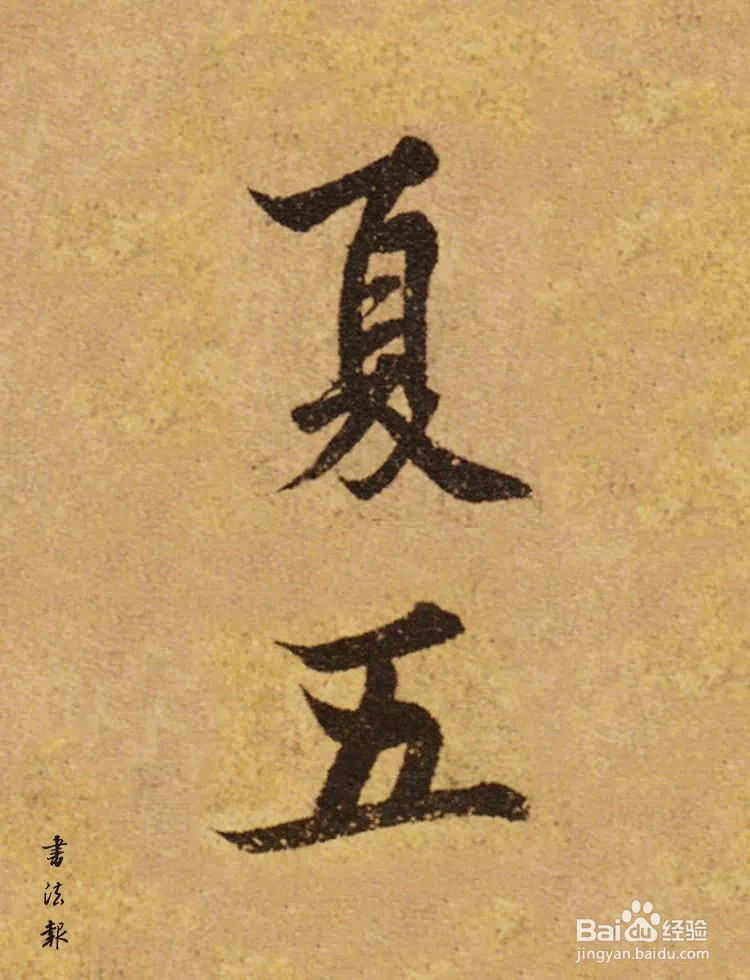 夏五
書法報
Baidu经验
jingyan.baidu.com